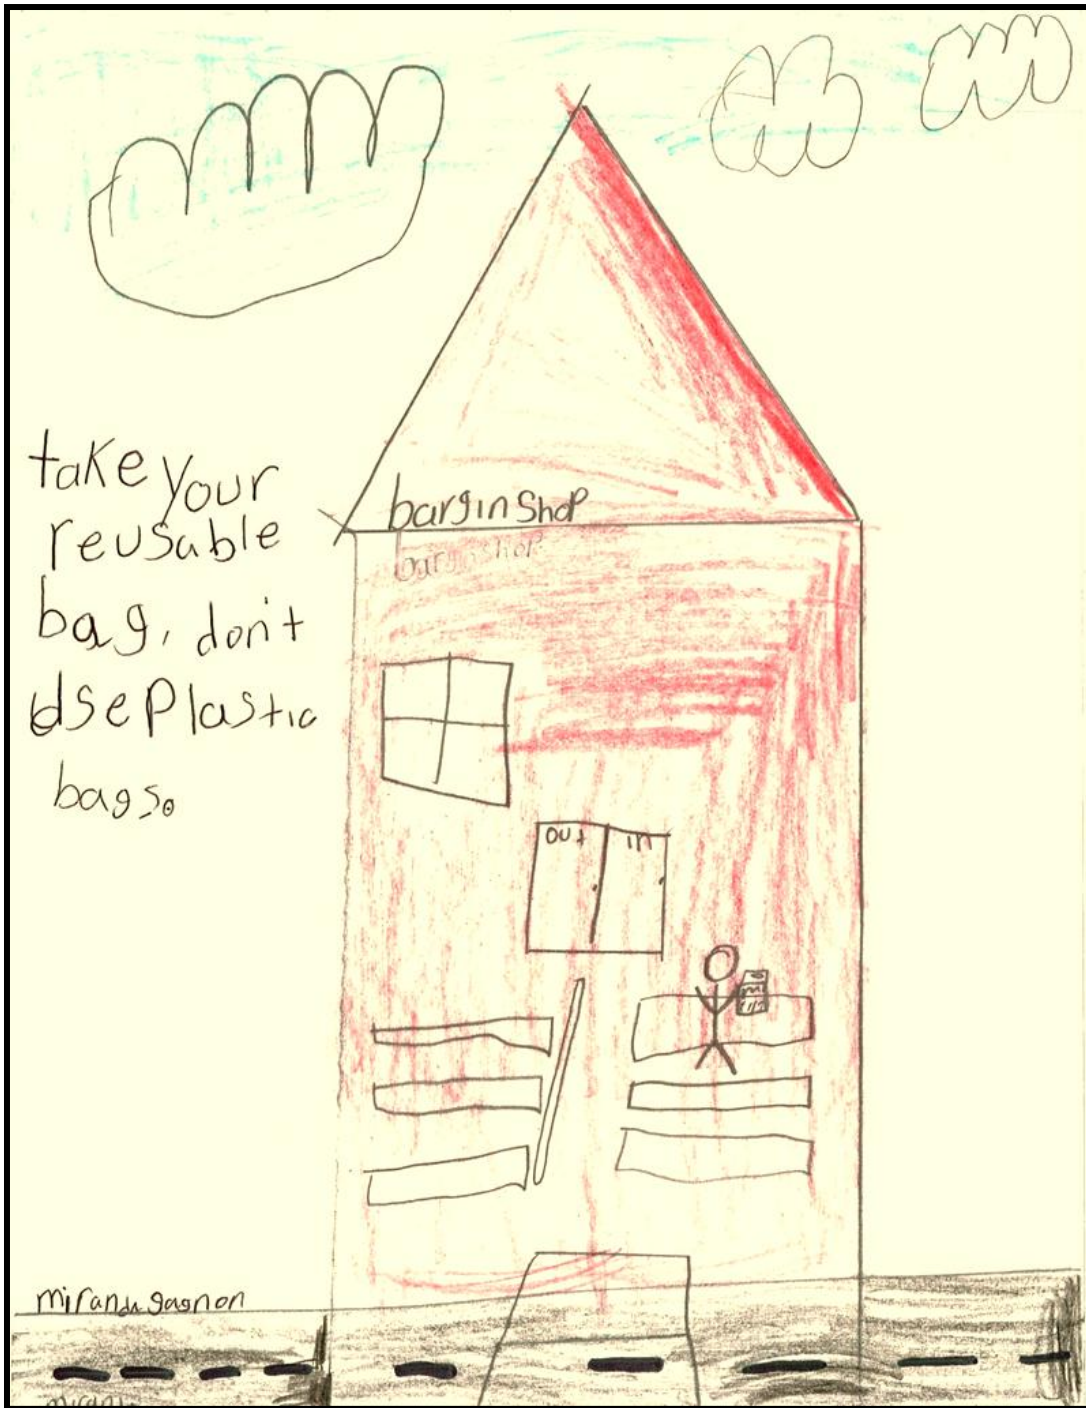 take your
reusable
bag, don't
use Plastic
bags.
bargin Shop
bargin shop
out in
miranda gagnon